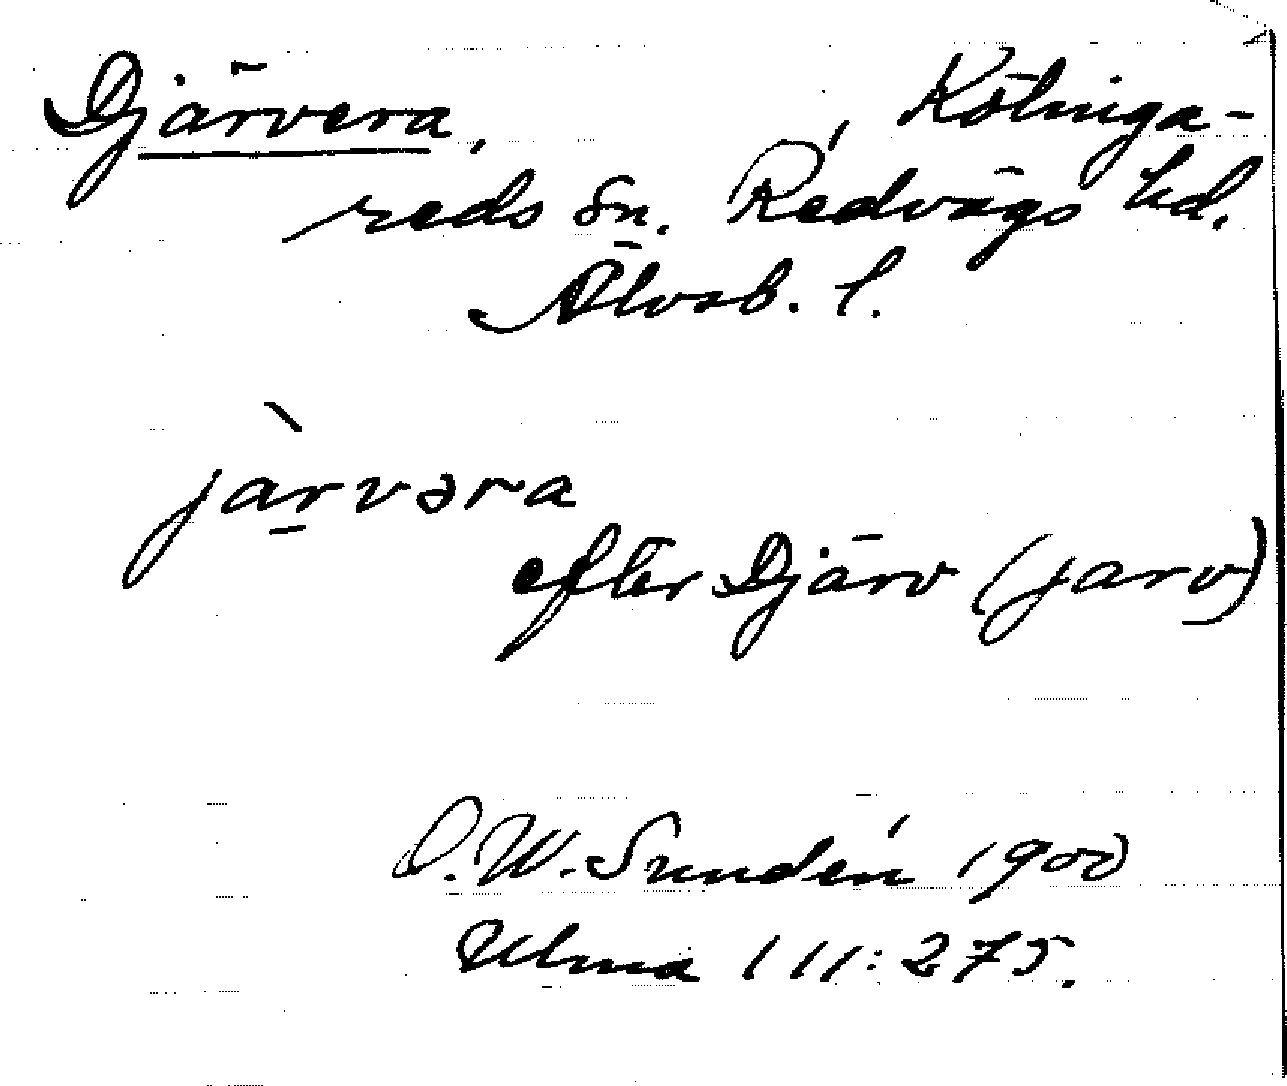 Djärvera, Kölinga-
reds sn. Redvägs hd.
Älvsb. l.
jàrvəra
efter Djärv (jarv)
D. W. Sundén 1900
Ulma 111:275.